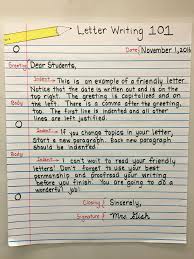 Letter Writing 101
Date November 1, 2016
Greeting Dear Students,
Indent→ This is an example of a friendly letter.
Notice that the date is written out and is on
the top right. The greeting is capitalized and
on the left. There is a comma after the greeting,
too. The first line is indented and all other
lines are pushed out to the left.
Body
Indent→ If you change topics in your letter,
start a new paragraph. Each new paragraph
should be indented.
Body
Indent→ I can't wait to read your friendly
letters! Don't forget to use your best
penmanship and proofread your writing
before you finish. You are going to do a
wonderful job!
Closing Sincerely,
Signature Mrs.